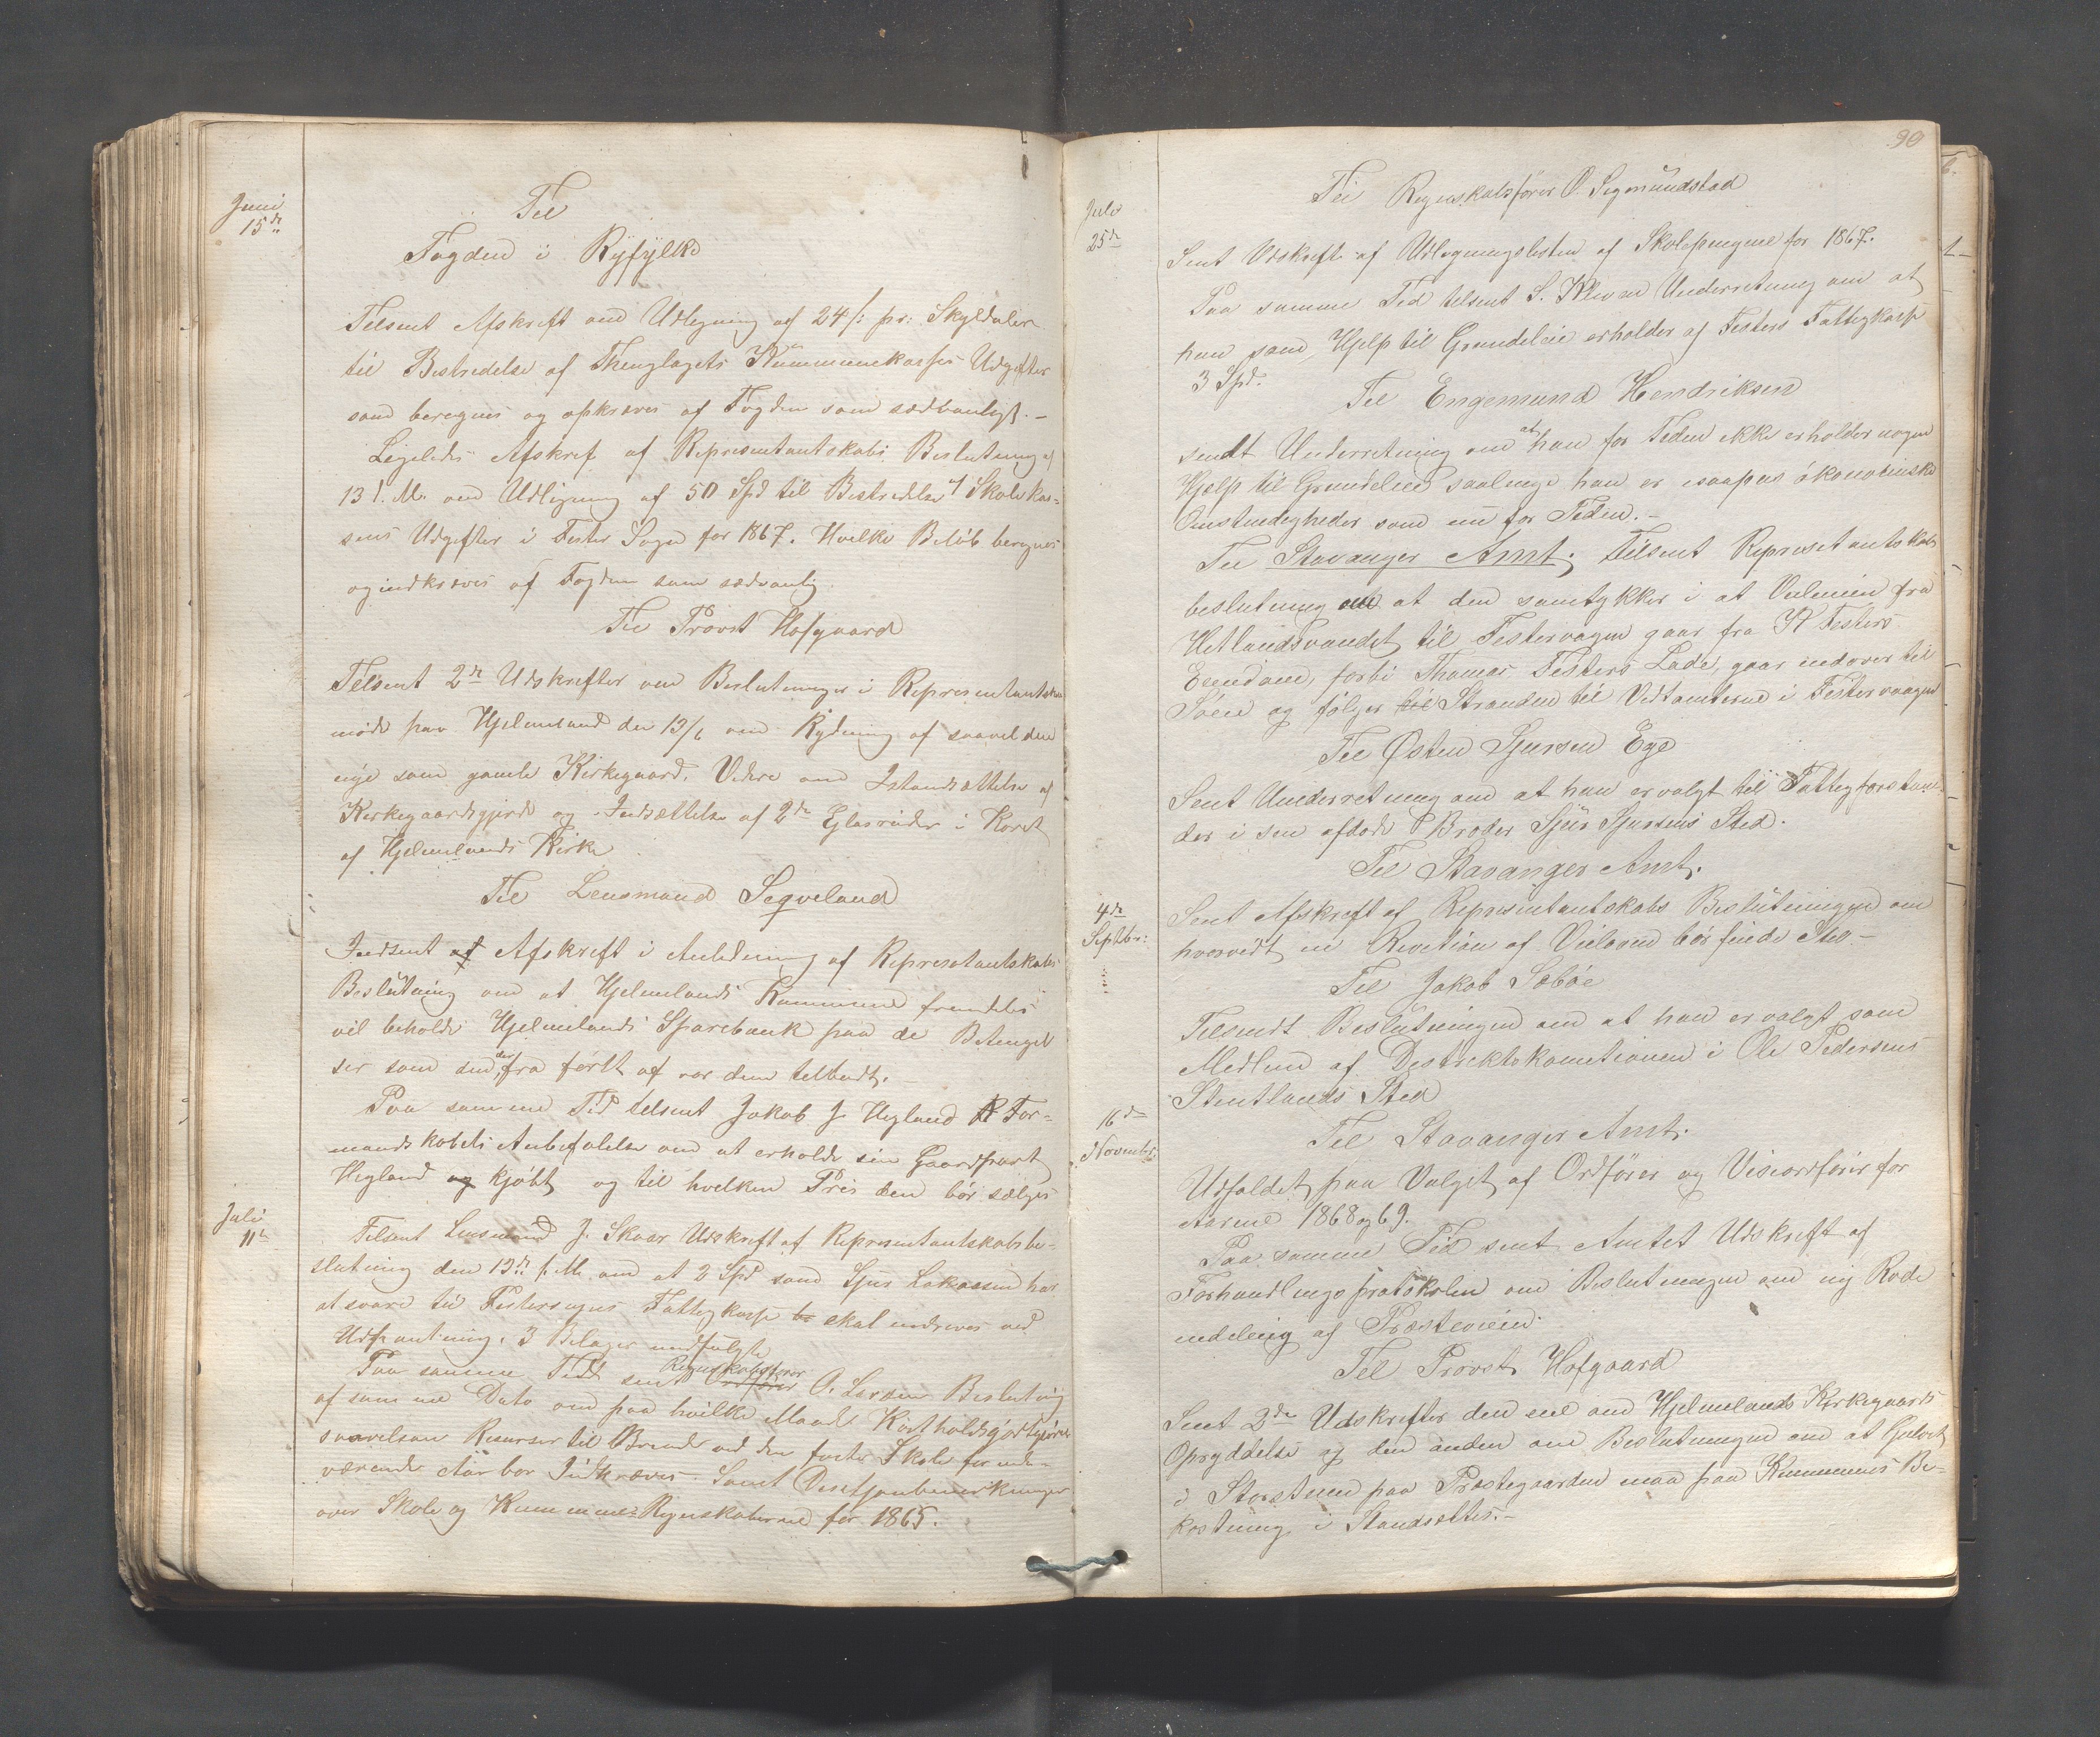 Juni
15de
Til
Fogden i Ryfylke
Tilsent Afskrift om Udlegning af 24 /: pr: Skyldaler
til Bestridelse af Thinglagets Kummunekasses Udgifter
som beregnes og opkræves af Fogden som sædvanligt. –
Ligeledes Afskref af Representantskabs Beslutning af
13 f. M. om Udligning af 50 Spd til Bestridelse af Skolekas-
sens Udgifter i Fister Sogn for 1867. Hvelke Beløb beregnes
og indkræves af Fogden som sædvanlig
Til Provst Hofgaard
Tilsent 2de Udskrifter om Beslutninger i Representantskabs
møde paa Hjelmeland den 13/6 om Rydning af saavel den
nye som gamle Kirkegaard. Videre om Istandsættelse af
Kirkegaardsgjerde og Indsættelse af 2de Glasruder i Koret
af Hjelmelands Kirke
Til Lensmand Seqveland
Indsent af Afskrift i Anledning af Represetantskabs
Beslutning om at Hjelmelands Kommune fremdeles
vil beholde Hjelmelands Sparebank paa de Betingel
ser som den der fra førlt af var dem tilbudt. –
Paa samme Tid tilsent Jakob J. Hegland R For-
mandskabets Anbefalelse om at erholde sin Gaardpart
Hegland og kjøbt og til hvelken Pris den bør sælges
Juli
11te
Tilsent Lensmand J. Skaar Udskreft af Representantskabsbe-
slutning den 13de f. M. om at 2 Spd som Sjur Lokassen har
at svare til Festersogns Fattegkasse be skal inndreves ved
Udpantning. 3 Belager medfulgte
Paa samme Tidt sent Ordfører Regnskabsfører O. Larsen Beslutnig
af samme Dato om paa hvilke Maade Kostholdsgodtgjørelse
saavelsom Resurser til Brende ved den faste Skole for inde-
værende Aar bør Indkræves. Samt Desitjonbemerkninger
over Skole og Kummune-Regnskaberne for 1865.
90
Juli
25de
Til Regnskabsfører O. Segmundstad
Sent Udskrift af Udlegningslesten af Skolepengene for 1867.
Paa samme Tid telsent S. Kleven Underretning om at
han som Hjelp til Grundeleie erholder af Festers Fattegkasse
3 Spd.
Til Engemund Hendriksen
sendt Underretning om at han for Teden ekke erholder nogen
Hjælp til Grundeleie saalenge han er i saapas økonomiske
Omstendegheder som nu for Teden. –
Til Stavanger Amt. Tilsent Represetantskabs
beslutning om at den samtykker i at Veilinien fra
Hetlandsvandet til Festervagen gaar fra K Festers
Eiendom, forbi Thomas Festers Lade, gaar indover til
Søeie og følger til Stranden til Vedtomterne i Festervaagen
Til Østen Sjursen Ege
Sent Underretning om at han er valgt til Fattegforstan-
der i sen afdøde Broder Sjur Sjursens Sted.
Til Stavanger Amt.
4de
Septbr:
Sent Afskreft af Representantskabs Beslutningen om
hvorvidt en Revetion af Veilovene bør finde Sted –
Til Jakob Sæbøe
Telsendt Beslutningen om at han er valgt som
Medlem af Destrektskometionen i Ole Pedersens
Stentlands Sted
16de
Novembr:
Til Stavanger Amt.
Udfaldet paa Valget af Ordfører og Viseordfører for
Aarene 1868 og 69.
Paa samme Tid sent Amtet Udskreft af
Forhandlingsprotokolen om Beslutningen om ny Rode
inddeling af Præsteveien.
Til Provst Hofgaard
Sent 2de Udskrefter den ene om Hjelmelands Kirkegaards
Opryddelse og den anden om Beslutningen om at Gulvet
i Storstuen paa Præstegaarden maa paa Kummunes Be-
kostning i Standsettes. –